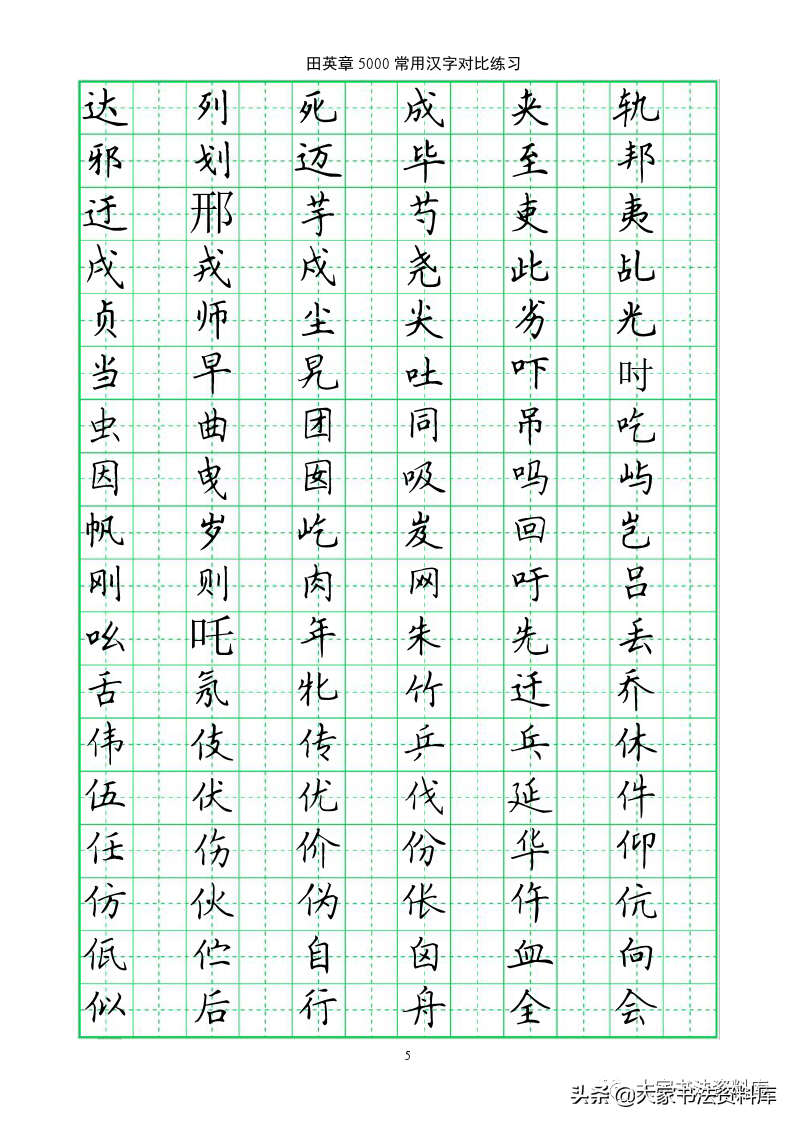 田英章5000常用汉字对比练习
达 列 死 成 夹 轨
邪 划 迈 毕 至 邦
迂 邢 芋 芍 吏 夷
戌 戎 戍 尧 此 乩
贞 师 尘 尖 劣 光
当 早 晃 吐 吓 吋
虫 曲 团 同 吊 吃
因 曳 囡 吸 吗 屿
帆 岁 屹 岌 回 岂
刚 则 肉 网 吁 吕
吆 吒 年 朱 先 丢
舌 氖 牝 竹 迁 乔
伟 伎 传 乒 乓 休
伍 伏 优 伐 延 件
任 伤 价 份 华 仰
仿 伙 伪 伥 仵 伉
伫 自 囟 血 向
似 后 行 舟 全 会
5
大家书法资料库
头条@大家书法资料库